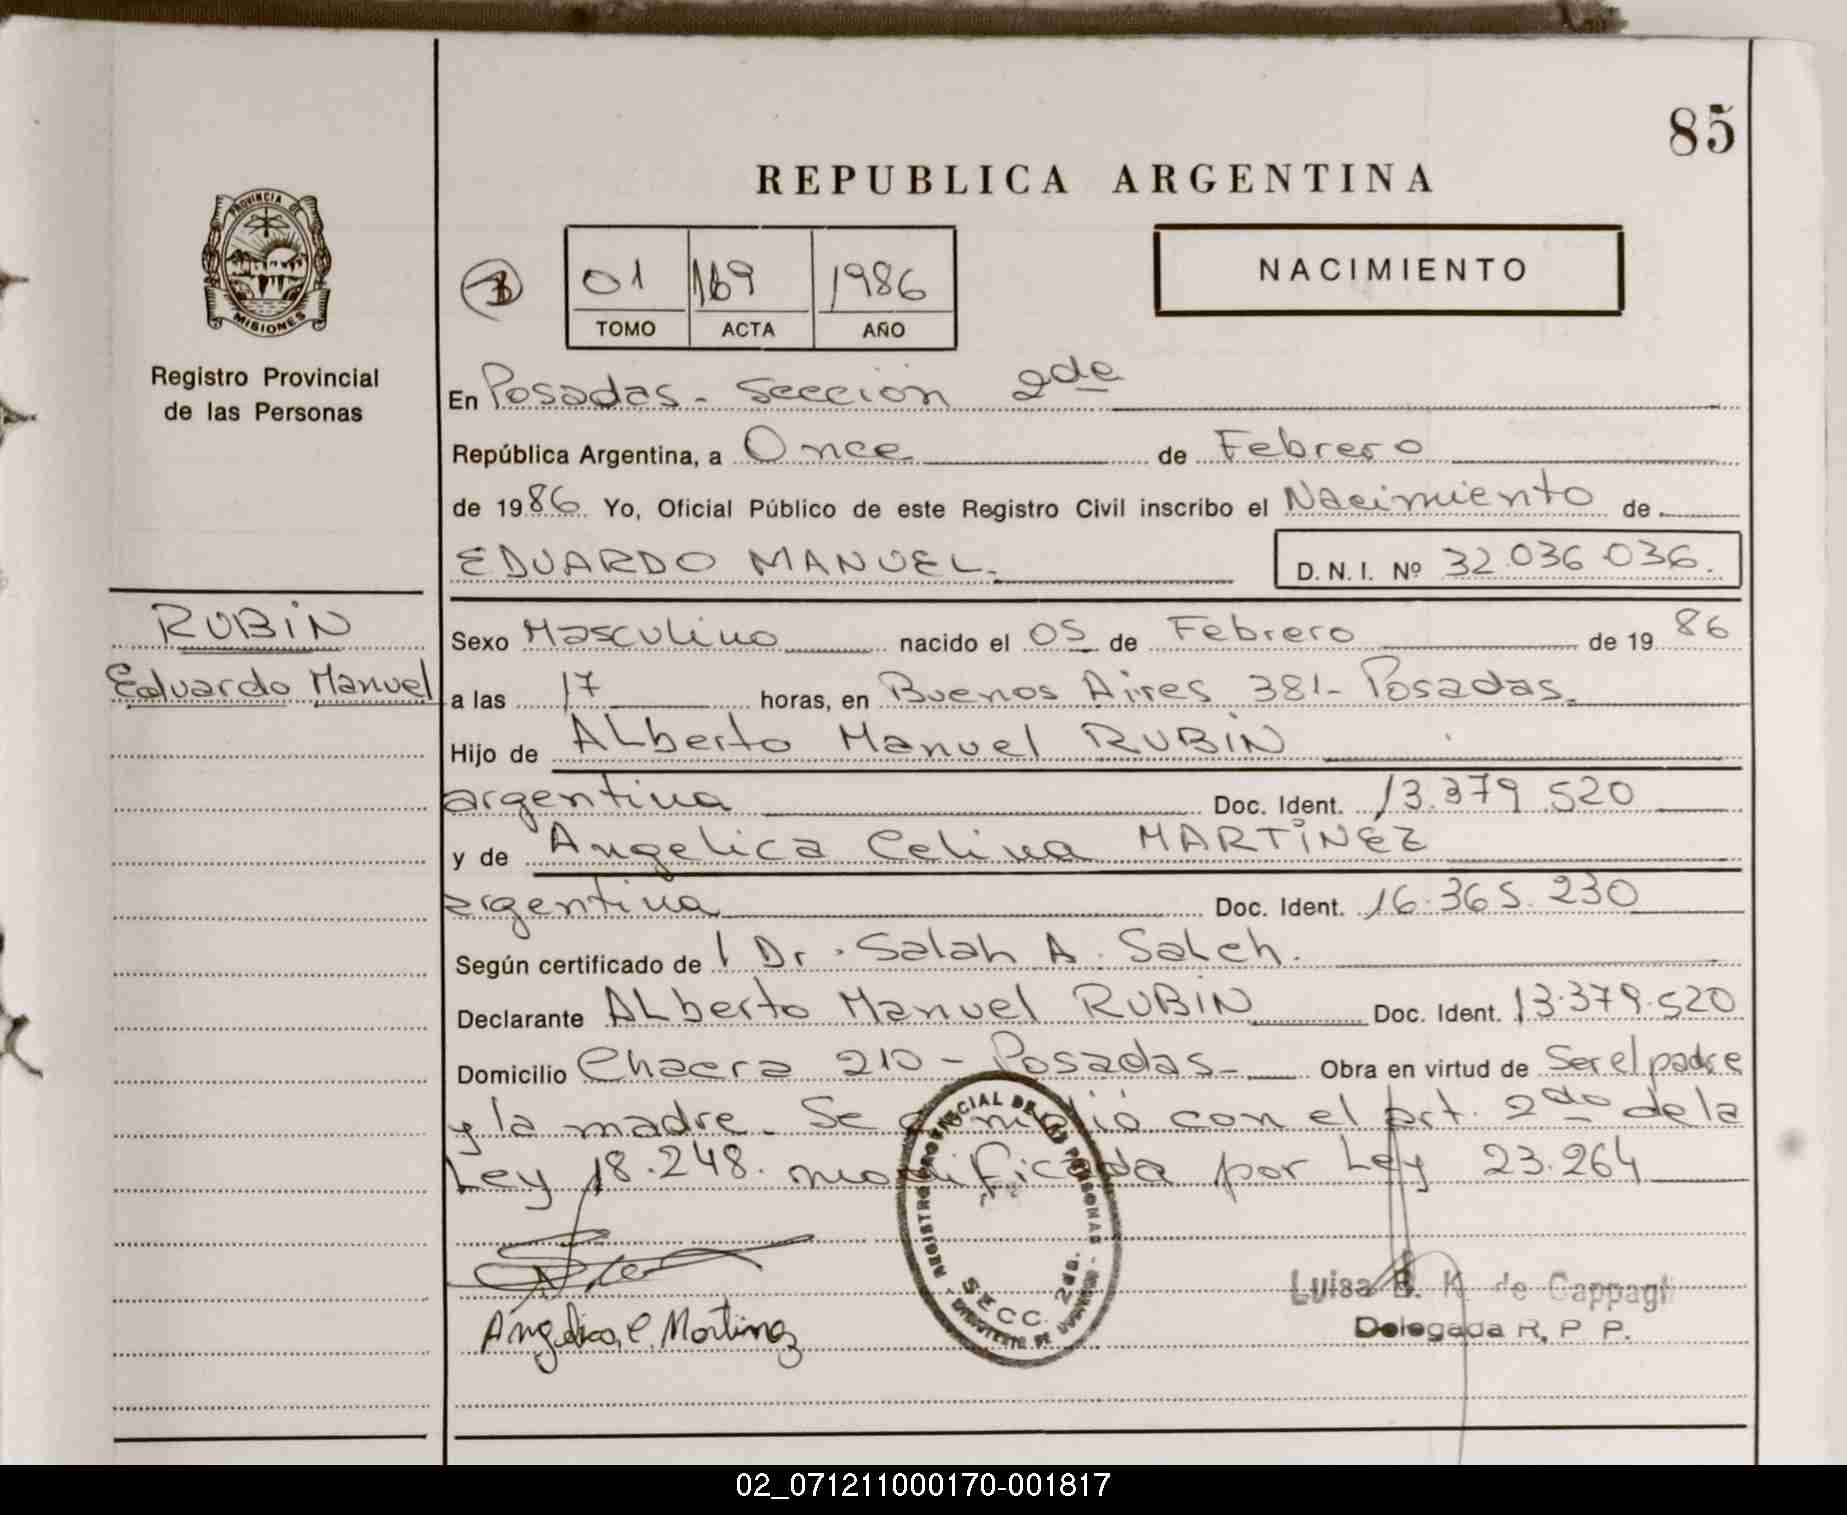 85
REPUBLICA ARGENTINA
PROVINCIA DE
MISIONES
Registro Provincial
de las Personas
01 169 1986
TOMO ACTA AÑO
NACIMIENTO
En Posadas - Sección 2da
República Argentina, a Once de Febrero
de 1986 Yo, Oficial Público de este Registro Civil inscribo el Nacimiento de
EDUARDO MANUEL. D. N. I. Nº 32.036.036.
RUBiN
Eduardo Manuel
Sexo Masculino nacido el 05 de Febrero de 1986
a las 17 horas, en Buenos Aires 381- Posadas.
Hijo de ALberto Manuel RUBiN
argentina Doc. Ident. 13.379.520
y de Angelica Celina MARTiNEZ
argentina Doc. Ident. 16.365.230
Según certificado de Dr. Salah A. Saleh.
Declarante ALberto Manuel RUBiN Doc. Ident. 13.379.520
Domicilio Chacra 210 - Posadas - Obra en virtud de Ser el padre
y la madre. Se cumplió con el art. 2do de la
Ley 18.248. modificada por Ley 23.264
REGISTRO PROVINCIAL DE LAS PERSONAS
SECC. 2da.
Angelica C. Martinez
Luisa B. K. de Cappagli
Delegada R. P. P.
02_071211000170-001817